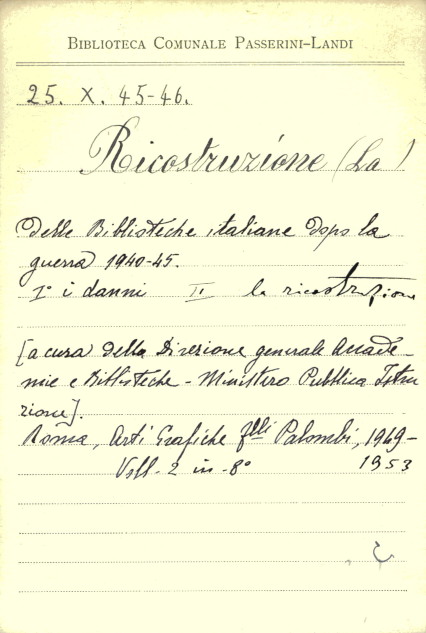 BIBLIOTECA COMUNALE PASSERINI-LANDI
25. X. 45-46.
Ricostruzione (La)
delle Biblioteche italiane dopo la
guerra 1940-45.
I° i danni II la ricostruzione
[a cura della Direzione generale Accade-
mie e Biblioteche - Ministero Pubblica Istru
zione].
Roma, Arti Grafiche f.lli Palombi, 1949-
1953
Voll. 2 in-8°